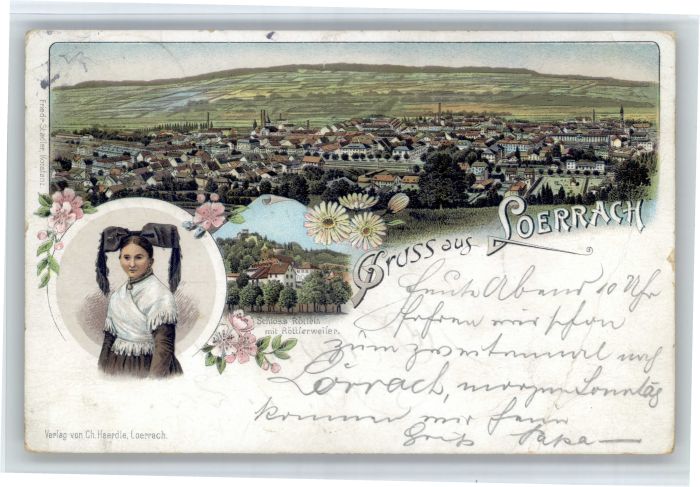 Friedr. Stadler, Konstanz.
Gruss aus LOERRACH
Schloss Rötteln
mit Röttlerweiler.
Heute Abend 10 Uhr
fahren wir schon
zum zweitenmal nach
Lörrach, morgen Sonntag
kommen wir heim
Gruß Papa —
Verlag von Ch. Haerdle, Loerrach.